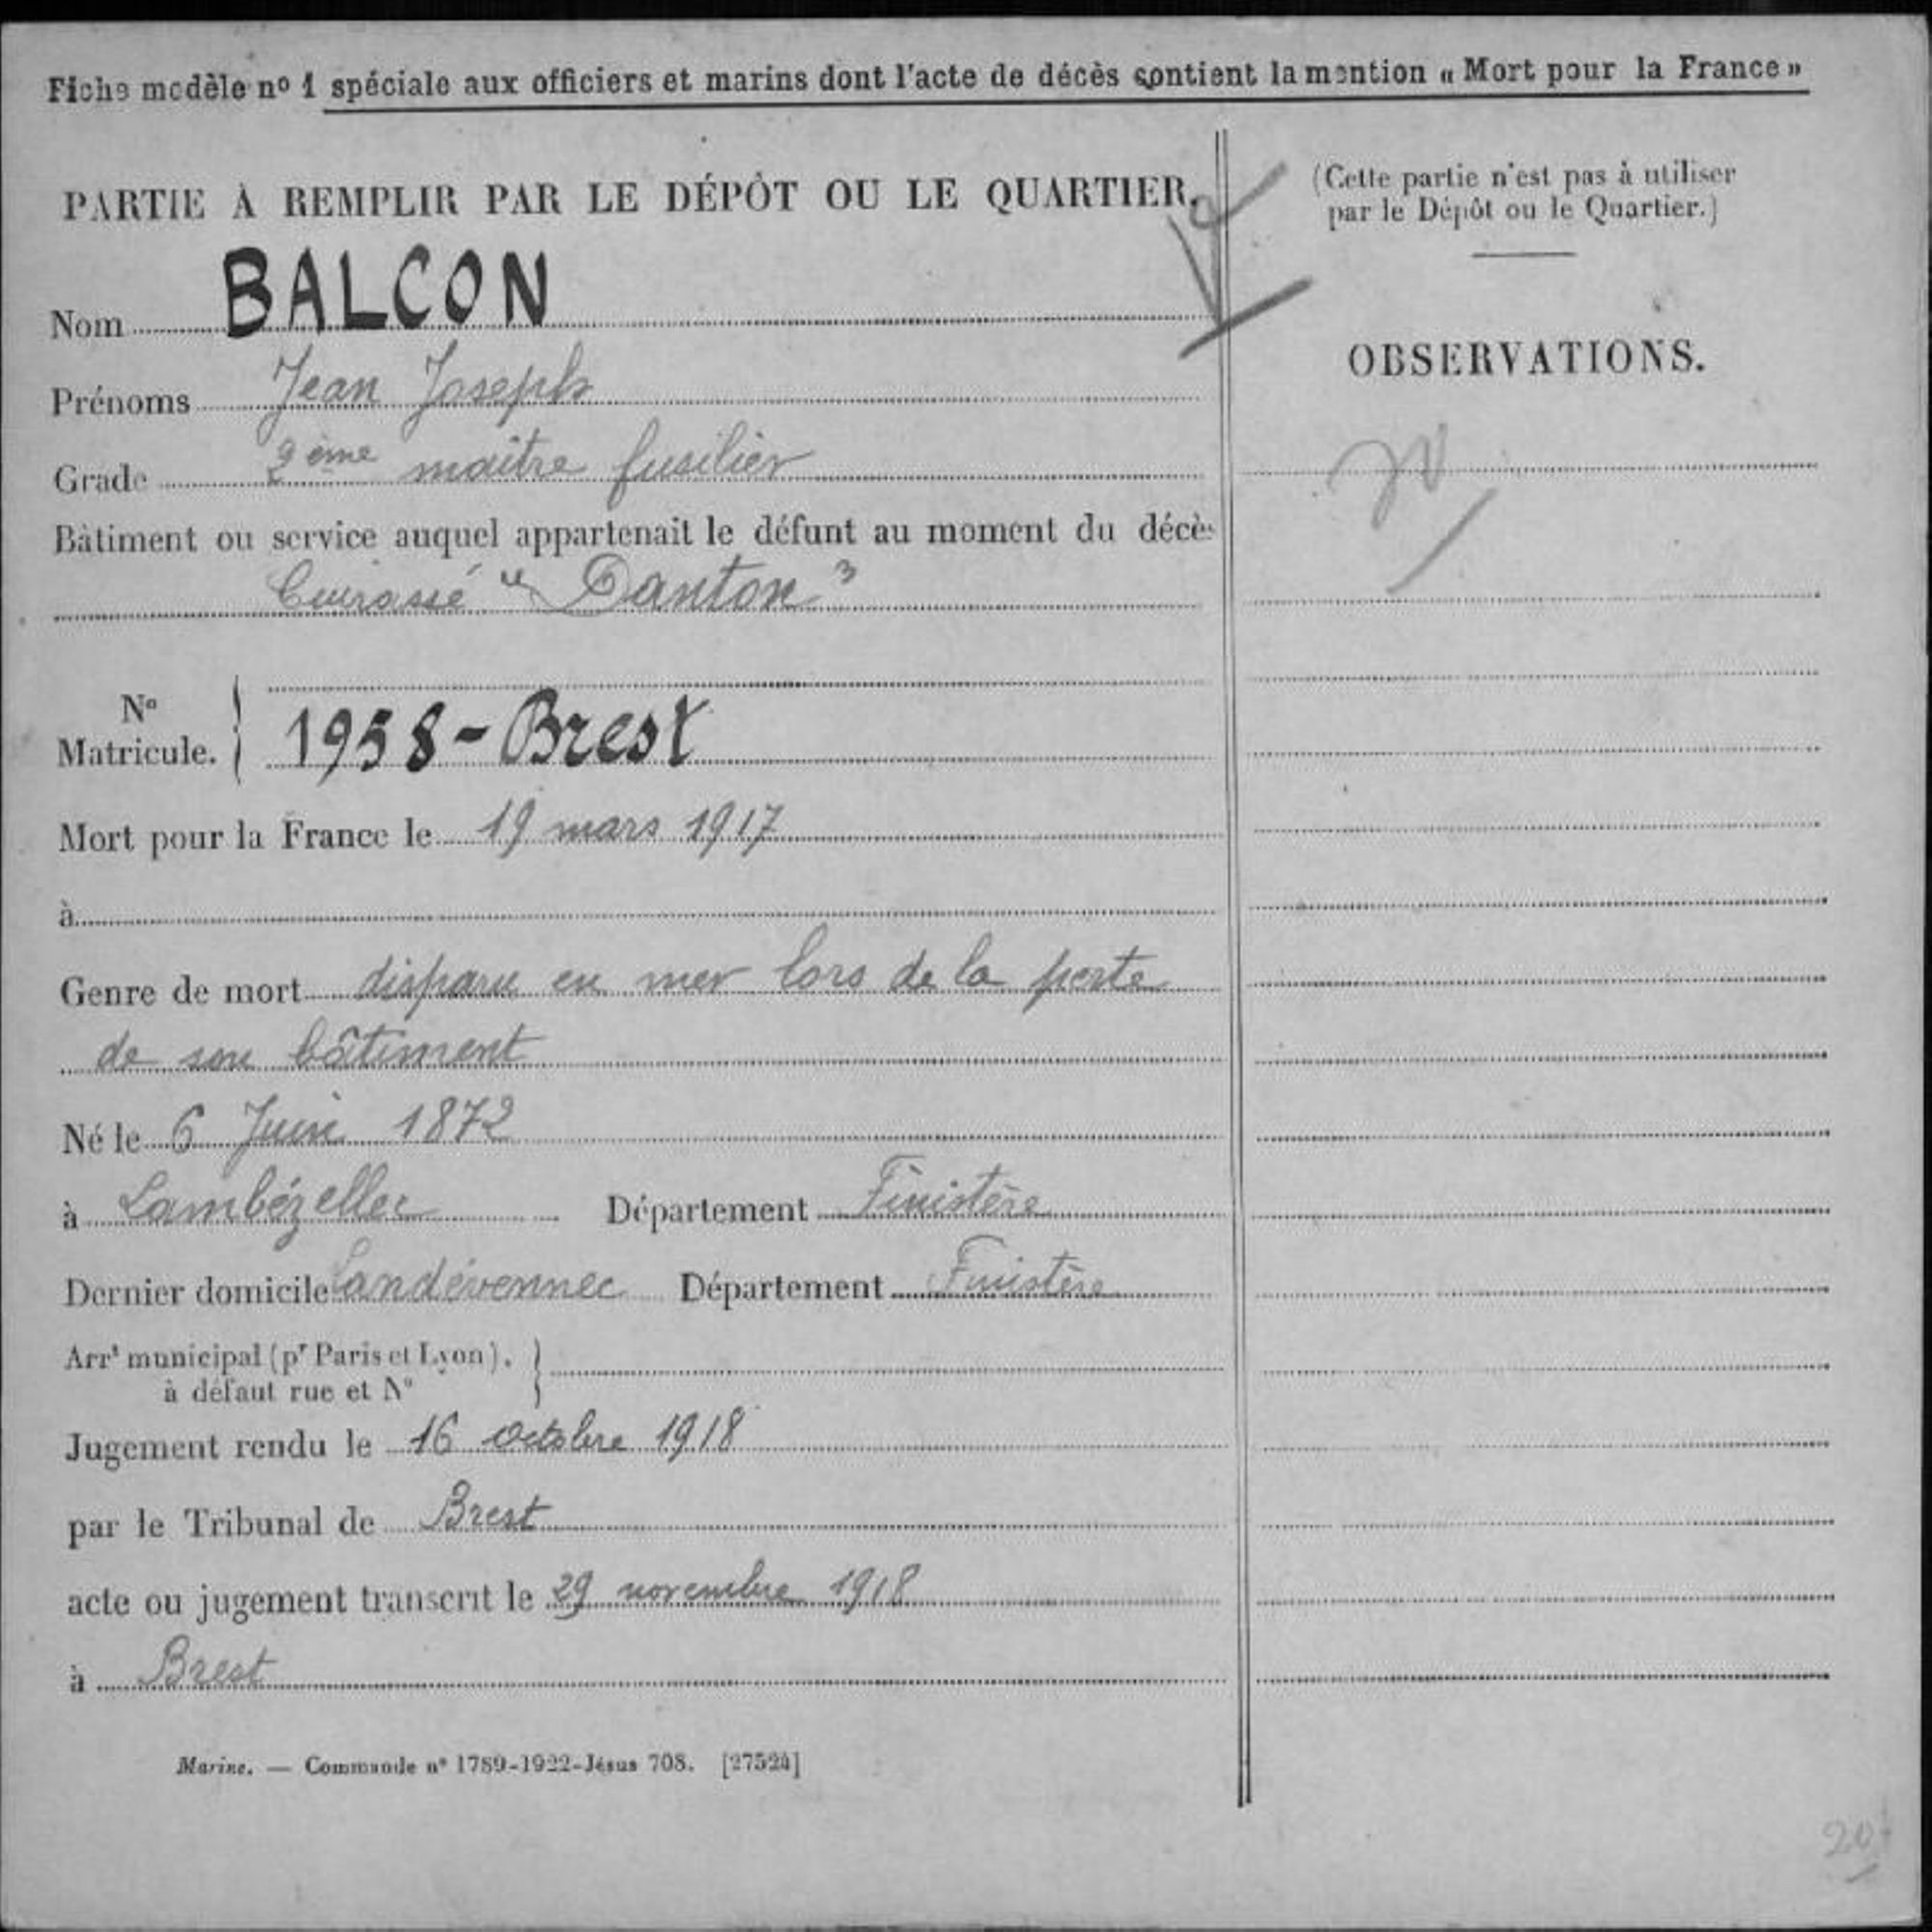 Fiche modèle nº 1 spéciale aux officiers et marins dont l'acte de décès contient la mention « Mort pour la France »
PARTIE À REMPLIR PAR LE DÉPÔT OU LE QUARTIER.
Nom BALCON
Prénoms Jean Joseph
Grade 2ème maître fusilier
Bâtiment ou service auquel appartenait le défunt au moment du décès
Cuirassé "Danton"
Nº
Matricule. 1958 - Brest
Mort pour la France le 19 mars 1917
à
Genre de mort disparu en mer lors de la perte
de son bâtiment
Né le 6 Juin 1872
à Lambézellec Département Finistère
Dernier domicile Landévennec Département Finistère
Arrt municipal (pr Paris et Lyon).
à défaut rue et Nº
Jugement rendu le 16 octobre 1918
par le Tribunal de Brest
acte ou jugement transcrit le 29 novembre 1918
à Brest
Marine. — Commande nº 1789-1922-Jésus 708. [27524]
(Cette partie n'est pas à utiliser
par le Dépôt ou le Quartier.)
OBSERVATIONS.